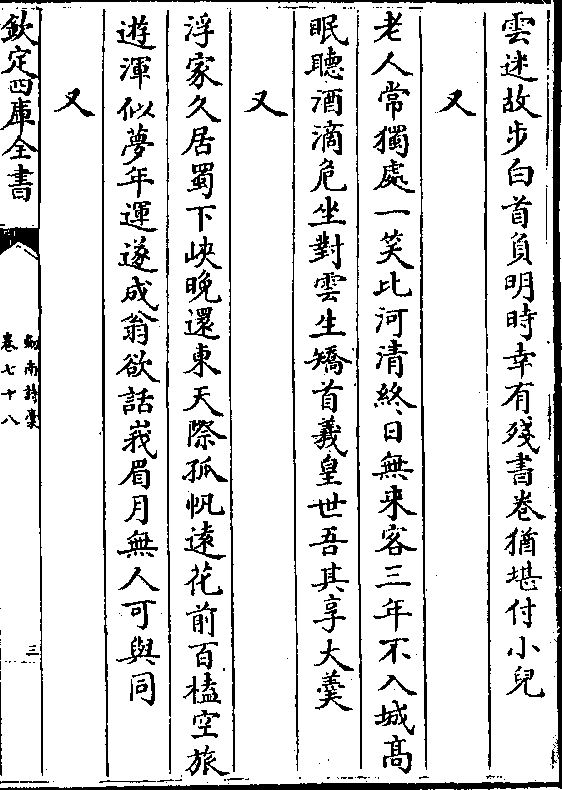 雲迷故步白首負明時幸有殘書卷猶堪付小兒
又
老人常獨處一笑比河清終日無来客三年不入城髙
眠聽酒滴危坐對雲生矯首羲皇世吾其享大羮
又
浮家久居蜀下峽晩還東天際孤帆逺花前百榼空旅
遊渾似夢年運遂成翁欲話峩眉月無人可與同
又
欽定四庫全書
劒南詩稾
卷七十八
三